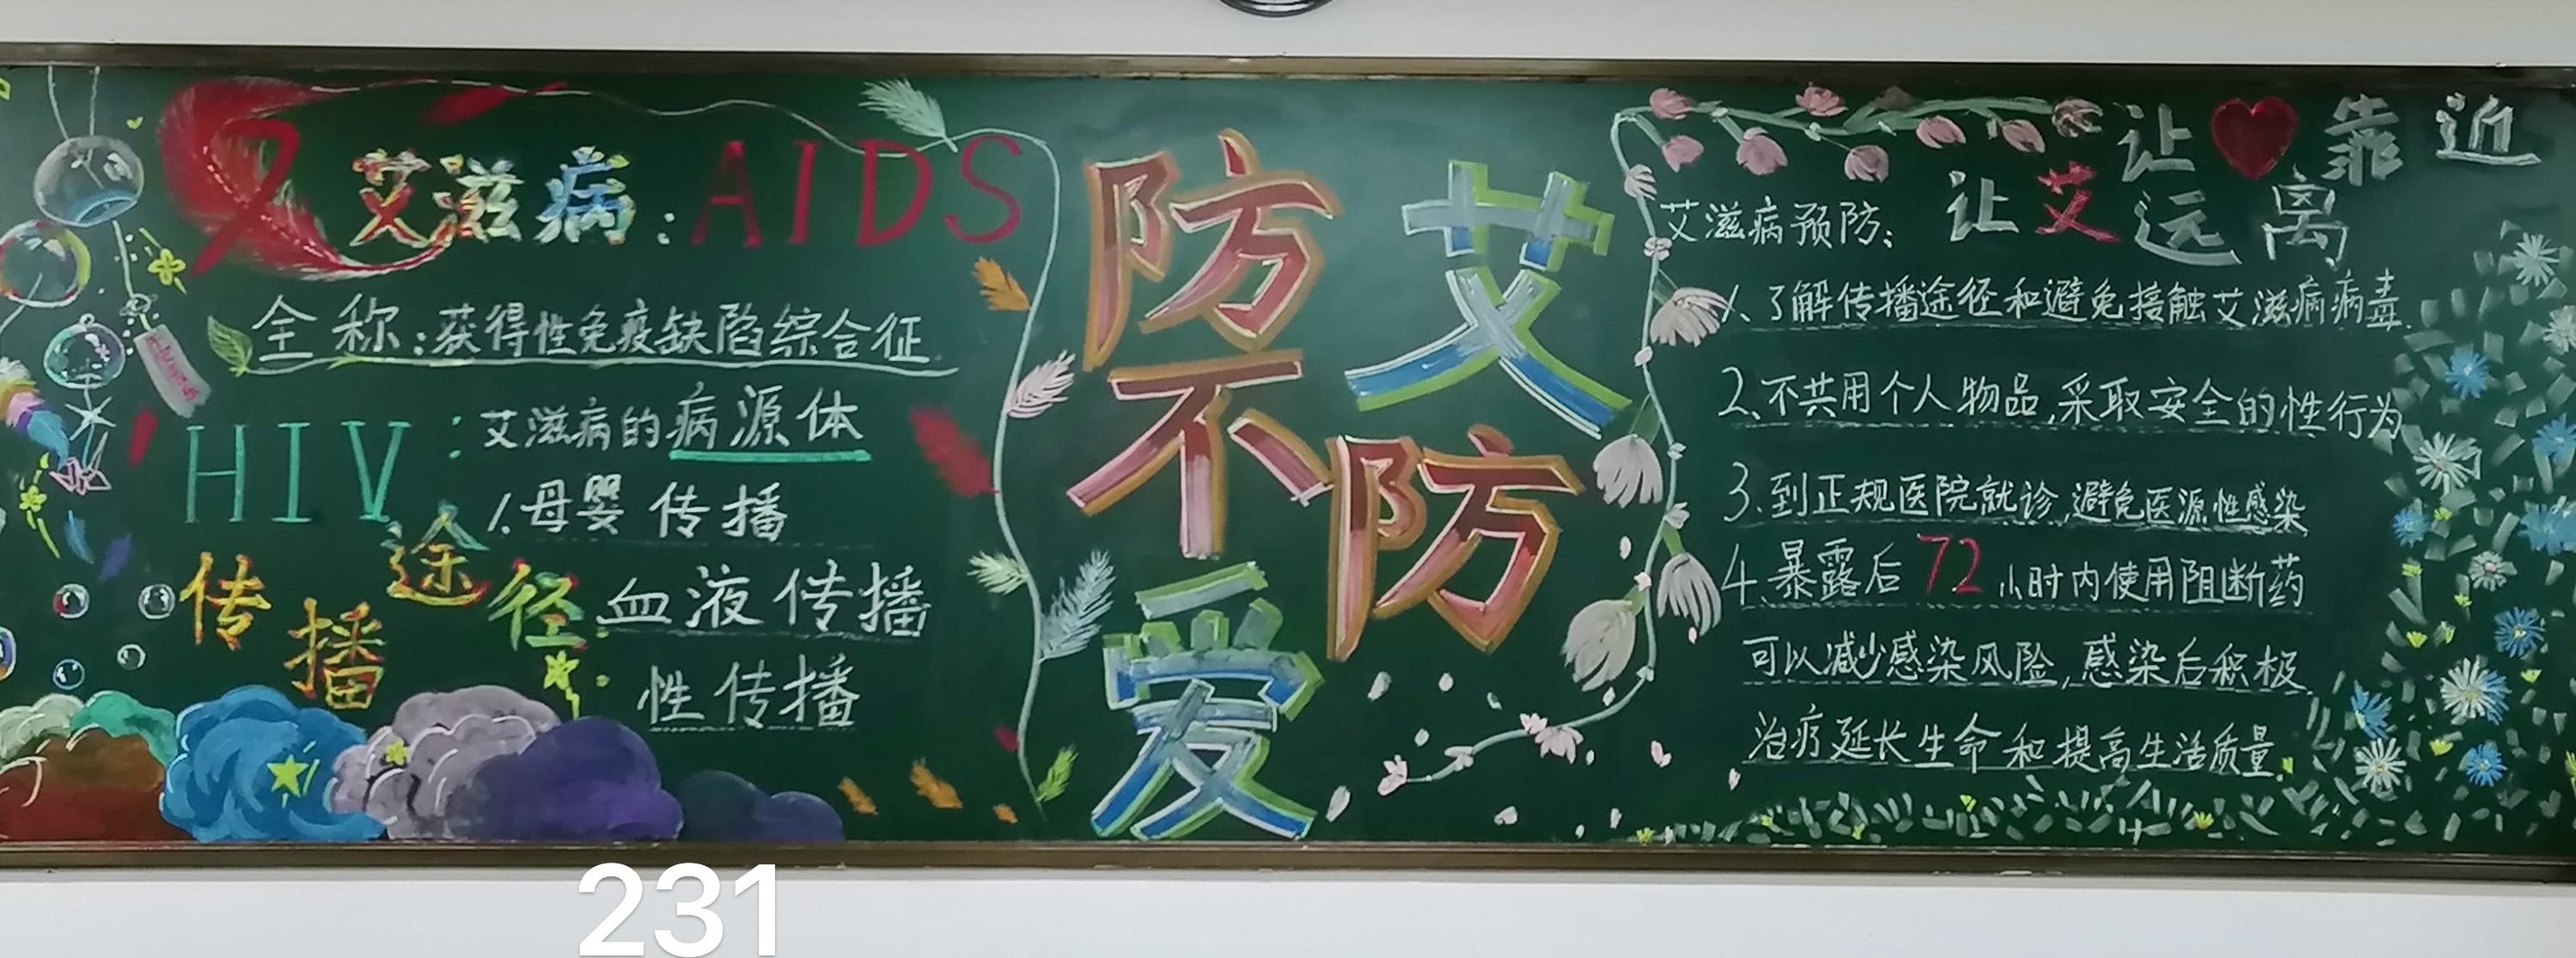 艾滋病:AIDS
全称:获得性免疫缺陷综合征
HIV:艾滋病的病源体
传播途径:
1.母婴传播
血液传播
性传播
防艾
不防
爱
让❤靠近
让艾远离
艾滋病预防:
1.了解传播途径和避免接触艾滋病病毒.
2.不共用个人物品,采取安全的性行为
3.到正规医院就诊,避免医源性感染
4.暴露后72小时内使用阻断药
可以减少感染风险,感染后积极
治疗延长生命和提高生活质量.
231